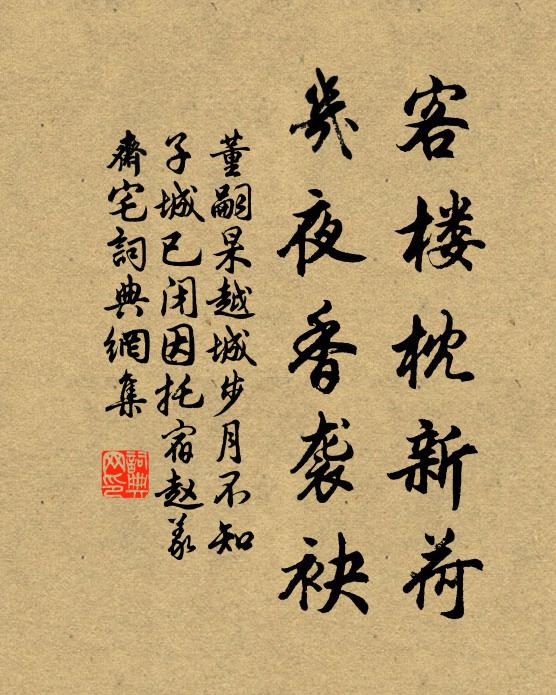 客楼枕新荷
几夜香袭袂
董嗣杲越城步月不知
子城已闭因托宿赵义
斋宅詞典網集
詞典网印